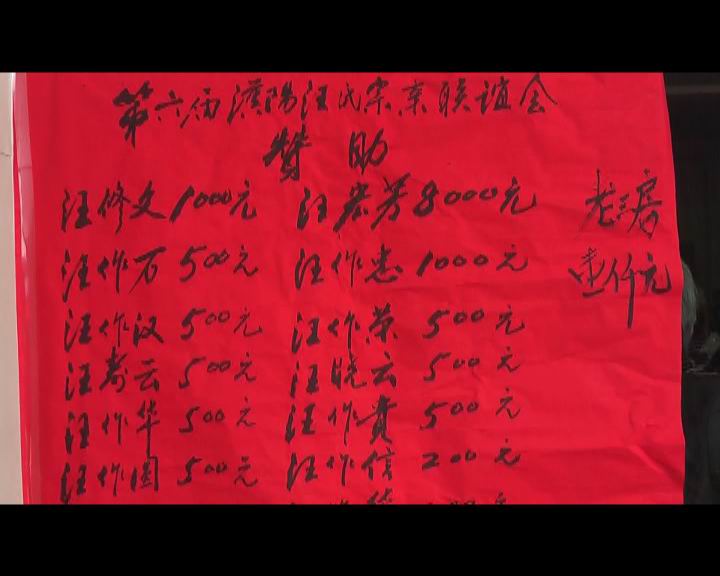 第六届濮阳汪氏宗亲联谊会
赞助
汪修文1000元 汪宏芳8000元
汪作万500元 汪作忠1000元
汪作汉500元 汪作荣500元
汪寿云500元 汪晓云500元
汪作华500元 汪作贵500元
汪作国500元 汪作信200元
老三房
壹仟元